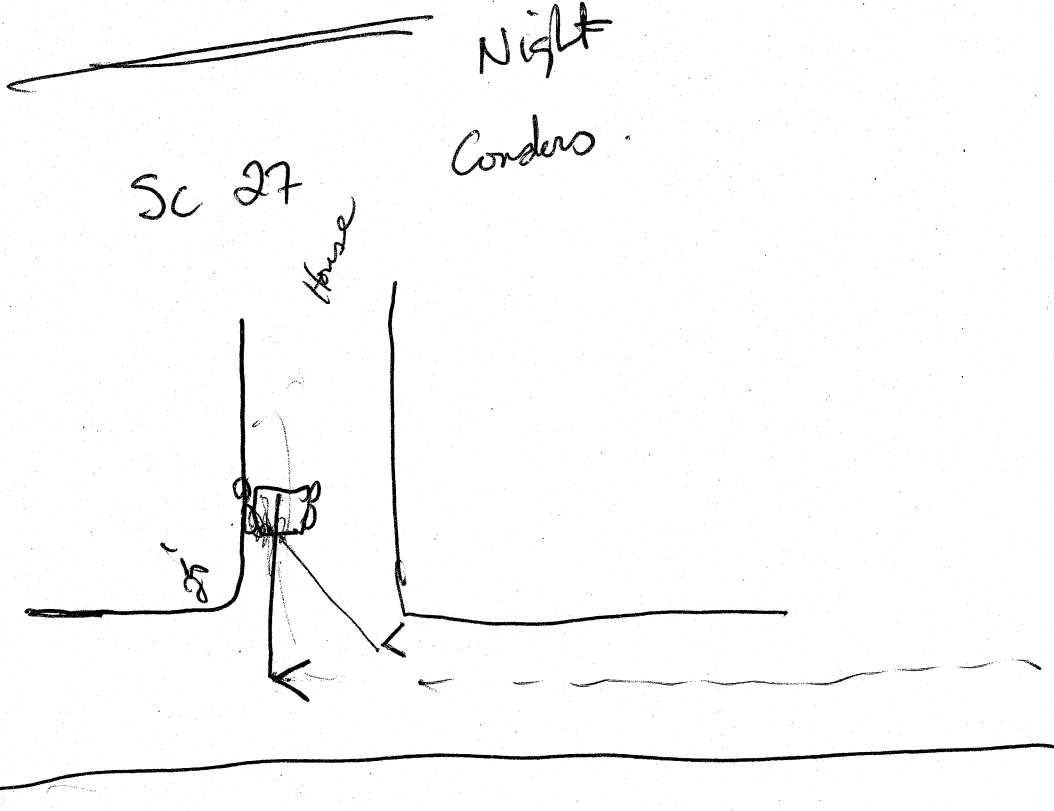 Night
Condens.
Sc 27
House